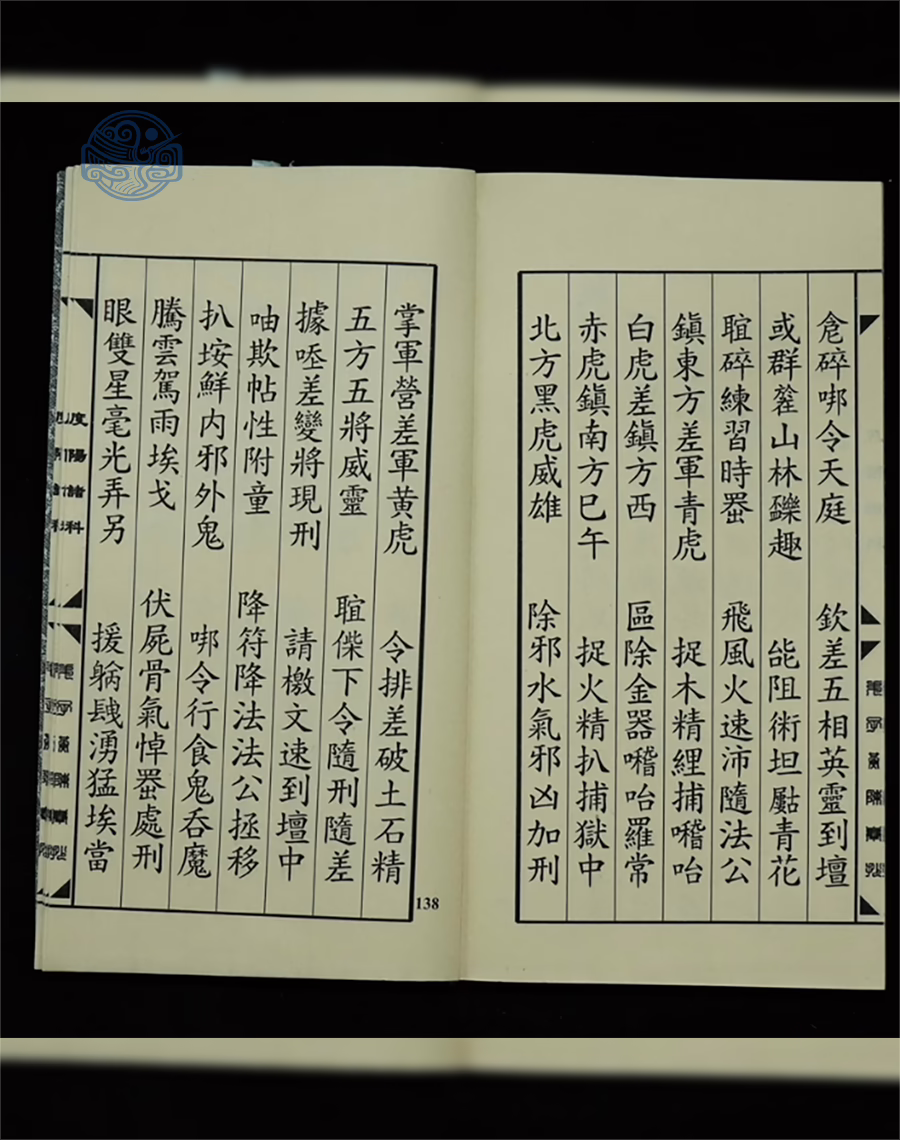 飽碎㖿令天庭 欽差五相英靈到壇
或群𨀈山林鑠趣 能阻術坦𪨀青花
𦖻碎練習時𤇮 飛風火速沛隨法公
鎮東方差軍青虎 捉木精𦁸捕嘈咍
白虎差鎮方西 區除金器嘈咍羅常
赤虎鎮南方巳午 捉火精扒捕獄中
北方黑虎威雄 除邪水氣邪凶加刑
掌軍營差軍黄虎 令排差破土石精
五方五將威靈 傑下令隨刑隨差
據差變將現刑 請檄文速到壇中
呻欺帖性附童 降符降法法公拯移
扒垵鮮内邪外鬼 㖿令行食鬼呑魔
騰雲駕雨埃戈 伏屍骨氣悼處刑
眼雙星毫光弄另 援湧猛埃當
138
度陽諸科